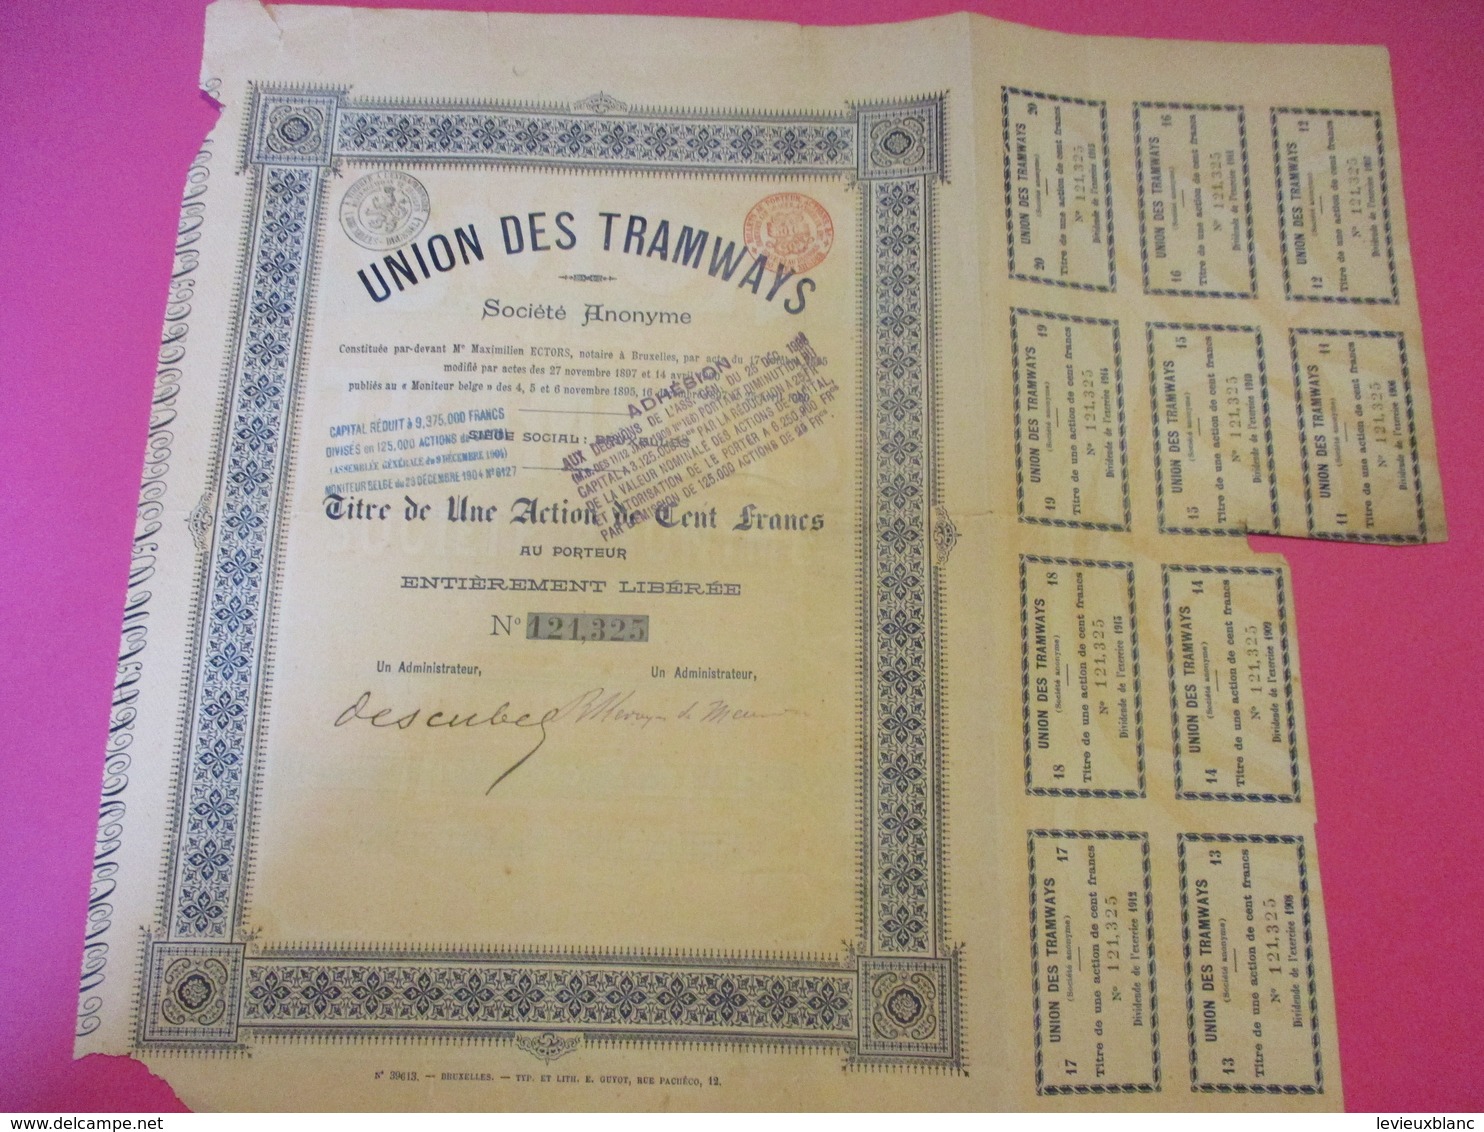 UNION DES TRAMWAYS
Société Anonyme
Constituée par-devant Me Maximilien ECTORS, notaire à Bruxelles, par acte du 17 1895
modifié par actes des 27 novembre 1897 et 14 avril
publiés au « Moniteur belge » des 4, 5 et 6 novembre 1895, 16
CAPITAL RÉDUIT à 9,375,000 FRANCS
DIVISÉS en 125,000 ACTIONS de
(ASSEMBLÉE GÉNÉRALE du 9 DÉCEMBRE 1904)
MONITEUR BELGE du 23 DÉCEMBRE 1904 No 6127
SIÈGE SOCIAL:
ADHÉSION
AUX DÉCISIONS DE L'ASS. GÉN. DU 25 DÉC.
CAPITAL A 3,125,000 PAR LA RÉDUCTION A 25 FR
DE LA VALEUR NOMINALE DES ACTIONS DE CAPITAL,
ET AUTORISATION DE LE PORTER A 6,250,000 FRS
PAR L'EMISSION DE 125,000 ACTIONS DE 25 FRS
Titre de Une Action de Cent Francs
AU PORTEUR
ENTIÈREMENT LIBÉRÉE
No 121,325
Un Administrateur, Un Administrateur,
No 39613. — BRUXELLES. — TYP. ET LITH. E. GUYOT, RUE PACHÉCO, 12.
20 UNION DES TRAMWAYS 20
(Société anonyme)
Titre de une action de cent francs
No 121,325
Dividende de l'exercice 1915
16 UNION DES TRAMWAYS 16
(Société anonyme)
Titre de une action de cent francs
No 121,325
Dividende de l'exercice 1911
12 UNION DES TRAMWAYS 12
(Société anonyme)
Titre de une action de cent francs
No 121,325
Dividende de l'exercice 1907
19 UNION DES TRAMWAYS 19
(Société anonyme)
Titre de une action de cent francs
No 121,325
Dividende de l'exercice 1914
15 UNION DES TRAMWAYS 15
(Société anonyme)
Titre de une action de cent francs
No 121,325
Dividende de l'exercice 1910
11 UNION DES TRAMWAYS 11
(Société anonyme)
Titre de une action de cent francs
No 121,325
Dividende de l'exercice 1906
18 UNION DES TRAMWAYS 18
(Société anonyme)
Titre de une action de cent francs
No 121,325
Dividende de l'exercice 1913
14 UNION DES TRAMWAYS 14
(Société anonyme)
Titre de une action de cent francs
No 121,325
Dividende de l'exercice 1909
17 UNION DES TRAMWAYS 17
(Société anonyme)
Titre de une action de cent francs
No 121,325
Dividende de l'exercice 1912
13 UNION DES TRAMWAYS 13
(Société anonyme)
Titre de une action de cent francs
No 121,325
Dividende de l'exercice 1908
www.delcampe.net
levieuxblanc